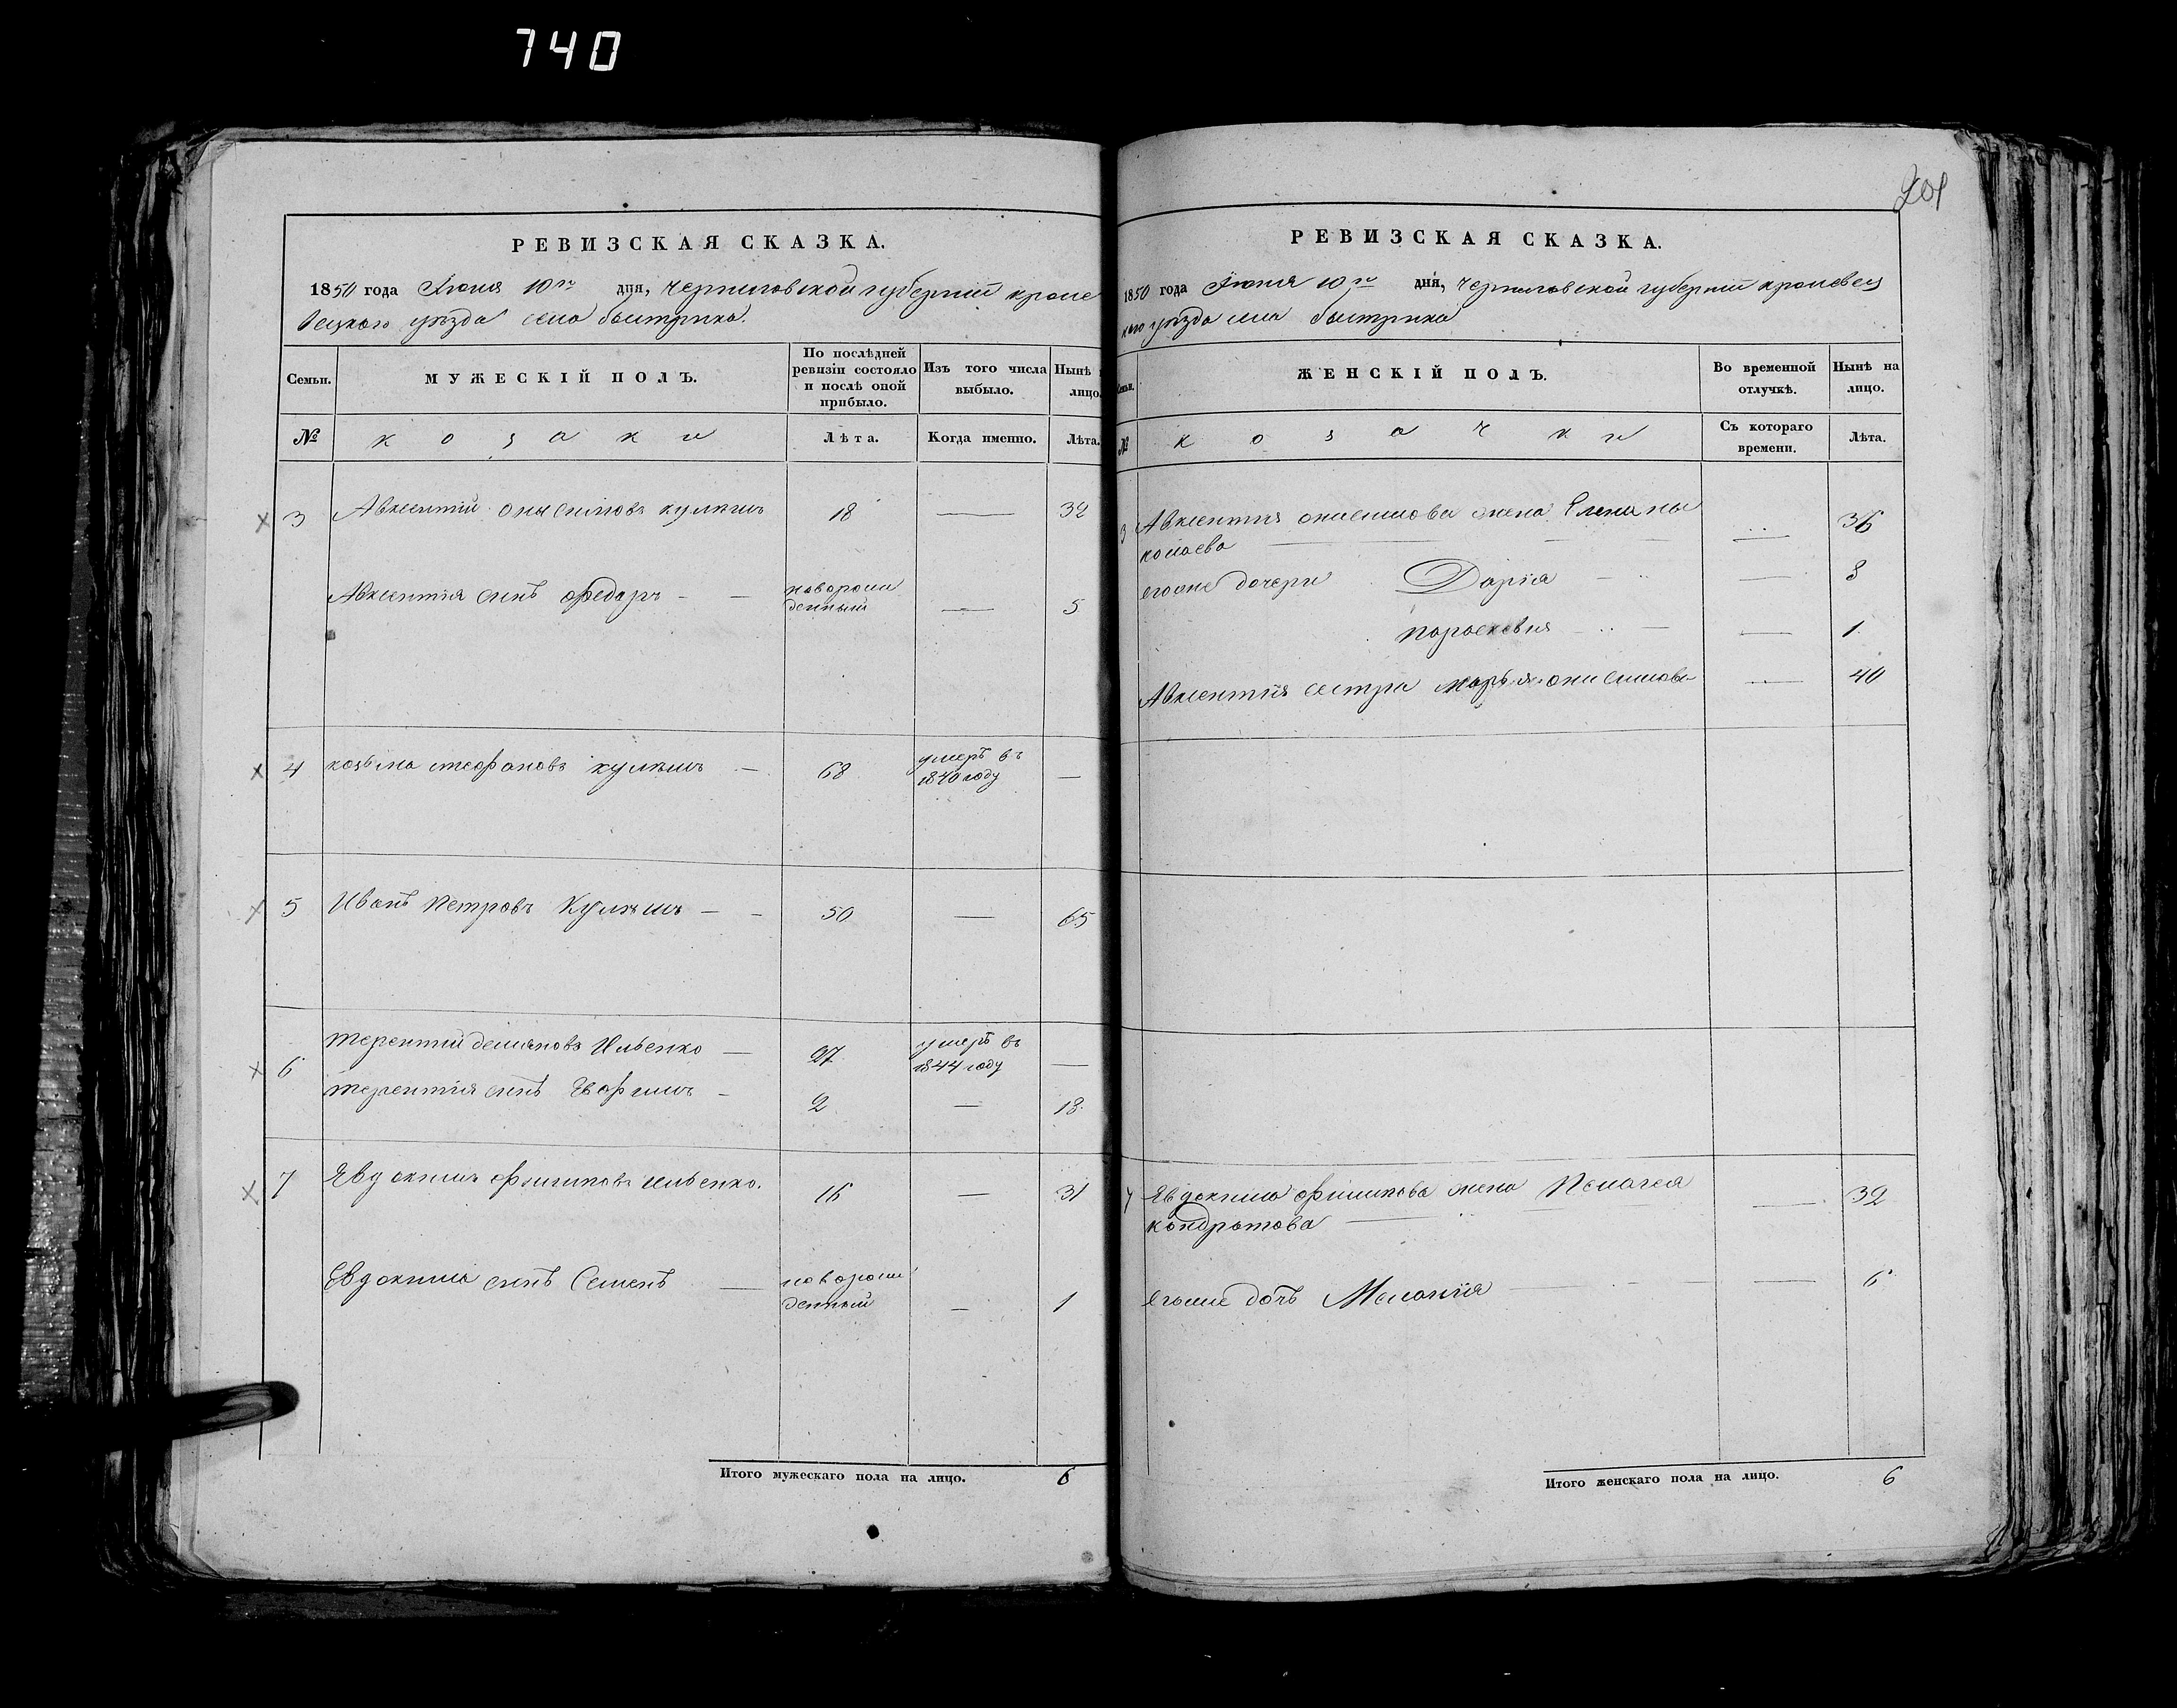 740
201
РЕВИЗСКАЯ СКАЗКА.
1850 года Июня 10го дня, Черниговской губерніи кроле
вецкого уѣзда села быстрика.
Семьи.
МУЖЕСКІЙ ПОЛЪ.
По послѣдней ревизіи состояло и послѣ оной прибыло.
Изъ того числа выбыло.
Нынѣ
лицо.
№
козаки
Лѣта.
Когда именно.
Лѣта.
3 Авксентій Онысимовъ кулишъ 18 — 32
Авксентія сынъ Федоръ - — новорож
денный — 5
4 козьма стефановъ кулишъ — 68 умеръ въ
1840 году —
5 Иванъ Петровъ Кулишъ — - 50 — 65
6 терентій демяновъ Ильенко — 27 умеръ въ
1844 году —
терентія сынъ Ефимъ - 2 — 18
7 Явдокимъ Филиповъ ильенко. 16 — 31
Евдокима сынъ Семенъ — новорож
денный — 1
Итого мужескаго пола на лицо. 6
РЕВИЗСКАЯ СКАЗКА.
1850 года Июня 10го дня, Черниговской губерніи кролевец
кого уѣзда села быстрика
Семьи.
ЖЕНСКІЙ ПОЛЪ.
Во временной отлучкѣ.
Нынѣ на лицо.
№
козачки
Съ котораго времени.
Лѣта.
3 Авксентія онисимова жена Елена ни
колаева — 36
егоже дочери Дарія — 8
параскевия — 1
Авксентія сестра марья онисимова — 40
7 Явдокима филипова жена Пелагея
кондратова — 32
Егоже дочь Меланія — 6
Итого женскаго пола на лицо. 6